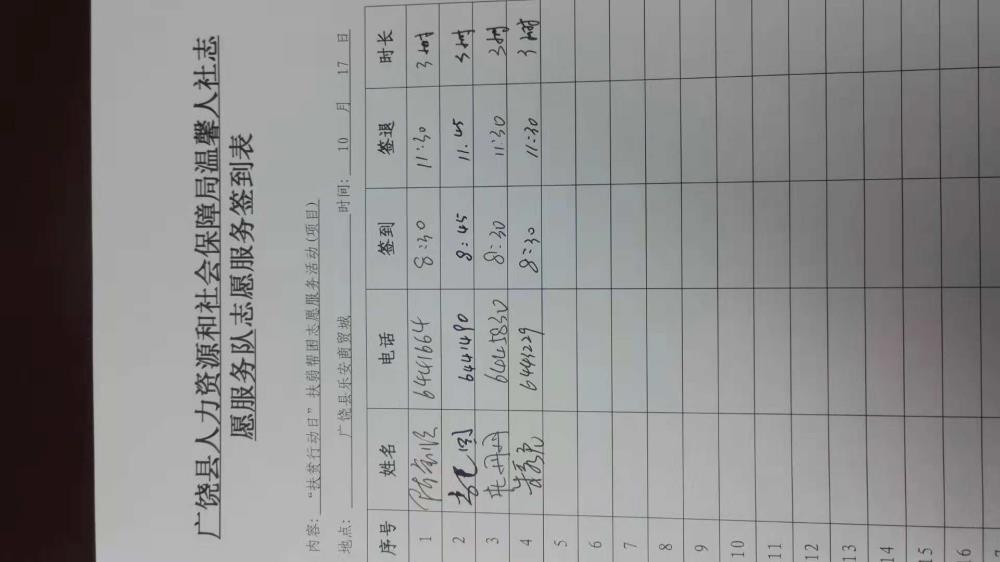 广饶县人力资源和社会保障局温馨人社志
愿服务队志愿服务签到表
内容: “扶贫行动日”扶弱帮困志愿服务活动(项目)
地点: 广饶县乐安商贸城 时间: 10 月 17 日
序号 姓名 电话 签到 签退 时长
1 6441664 8:30 11:30 3小时
2 6441490 8:45 11.45 3小时
3 丹丹 8:30 11:30 3小时
4 6443229 8:30 11:30 3小时
5
6
7
8
9
10
11
12
13
14
15
16